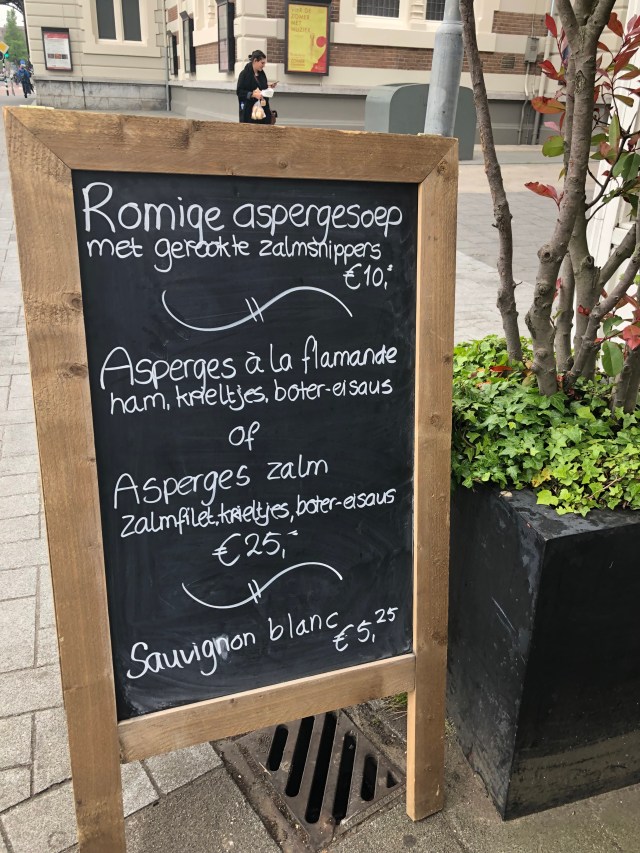 Romige aspergesoep
met gerookte zalmsnippers
€10,-
Asperges à la flamande
ham, krieltjes, boter-ei saus
of
Asperges zalm
zalmfilet, krieltjes, boter-eisaus
€25,-
Sauvignon blanc €5,25